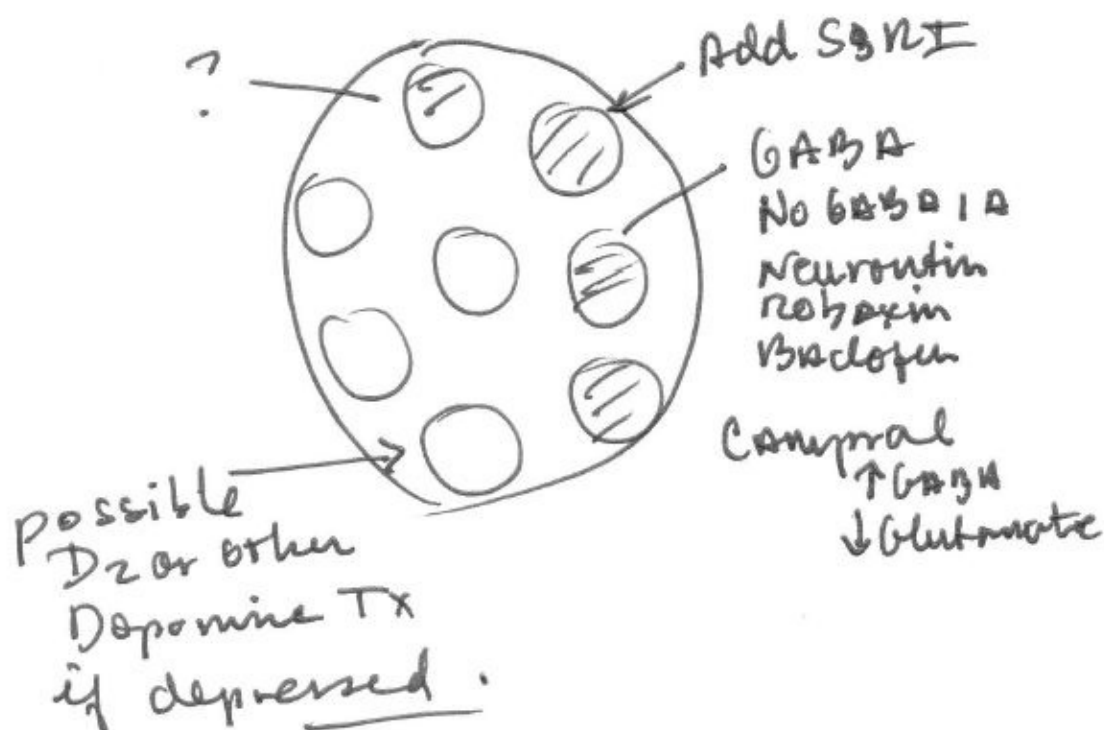 ?
Add SSRI
GABA
No GABA 1A
Neurontin
Robaxin
Baclofen
Campral
↑ GABA
↓ Glutamate
Possible
D2 or other
Dopamine Tx
if depressed.